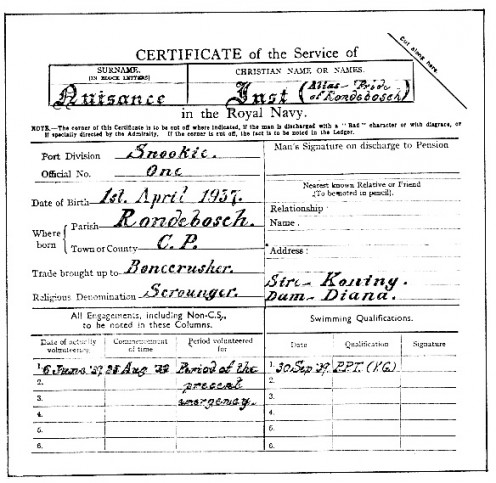 CERTIFICATE of the Service of
Cut along here.
SURNAME. CHRISTIAN NAME OR NAMES.
(IN BLOCK LETTERS)
Nuisance Just (Alias - Pride of Rondebosch)
in the Royal Navy.
NOTE.—The corner of this Certificate is to be cut off where indicated, if the man is discharged with a "Bad" character or with disgrace, or
if specially directed by the Admiralty. If the corner is cut off, the fact is to be noted in the Ledger.
Port Division Snookie.
Official No. One
Date of Birth 1st. April 1937.
Where born { Parish Rondebosch.
Town or County C.P.
Trade brought up to Bonecrusher.
Religious Denomination Scrounger.
Man's Signature on discharge to Pension
Nearest known Relative or Friend
(To be noted in pencil).
Relationship :
Name :
Address :
Sire - Koning.
Dam - Diana.
All Engagements, including Non-C.S., to be noted in these Columns.
Swimming Qualifications.
Date of actually volunteering. Commencement of time Period volunteered for
Date Qualification Signature
1. 25 Aug '39 Period of the
2. present
3. emergency.
4.
5.
6.
1. 30 Sep '39. P.P.T. (V.G.)
2.
3.
4.
5.
6.